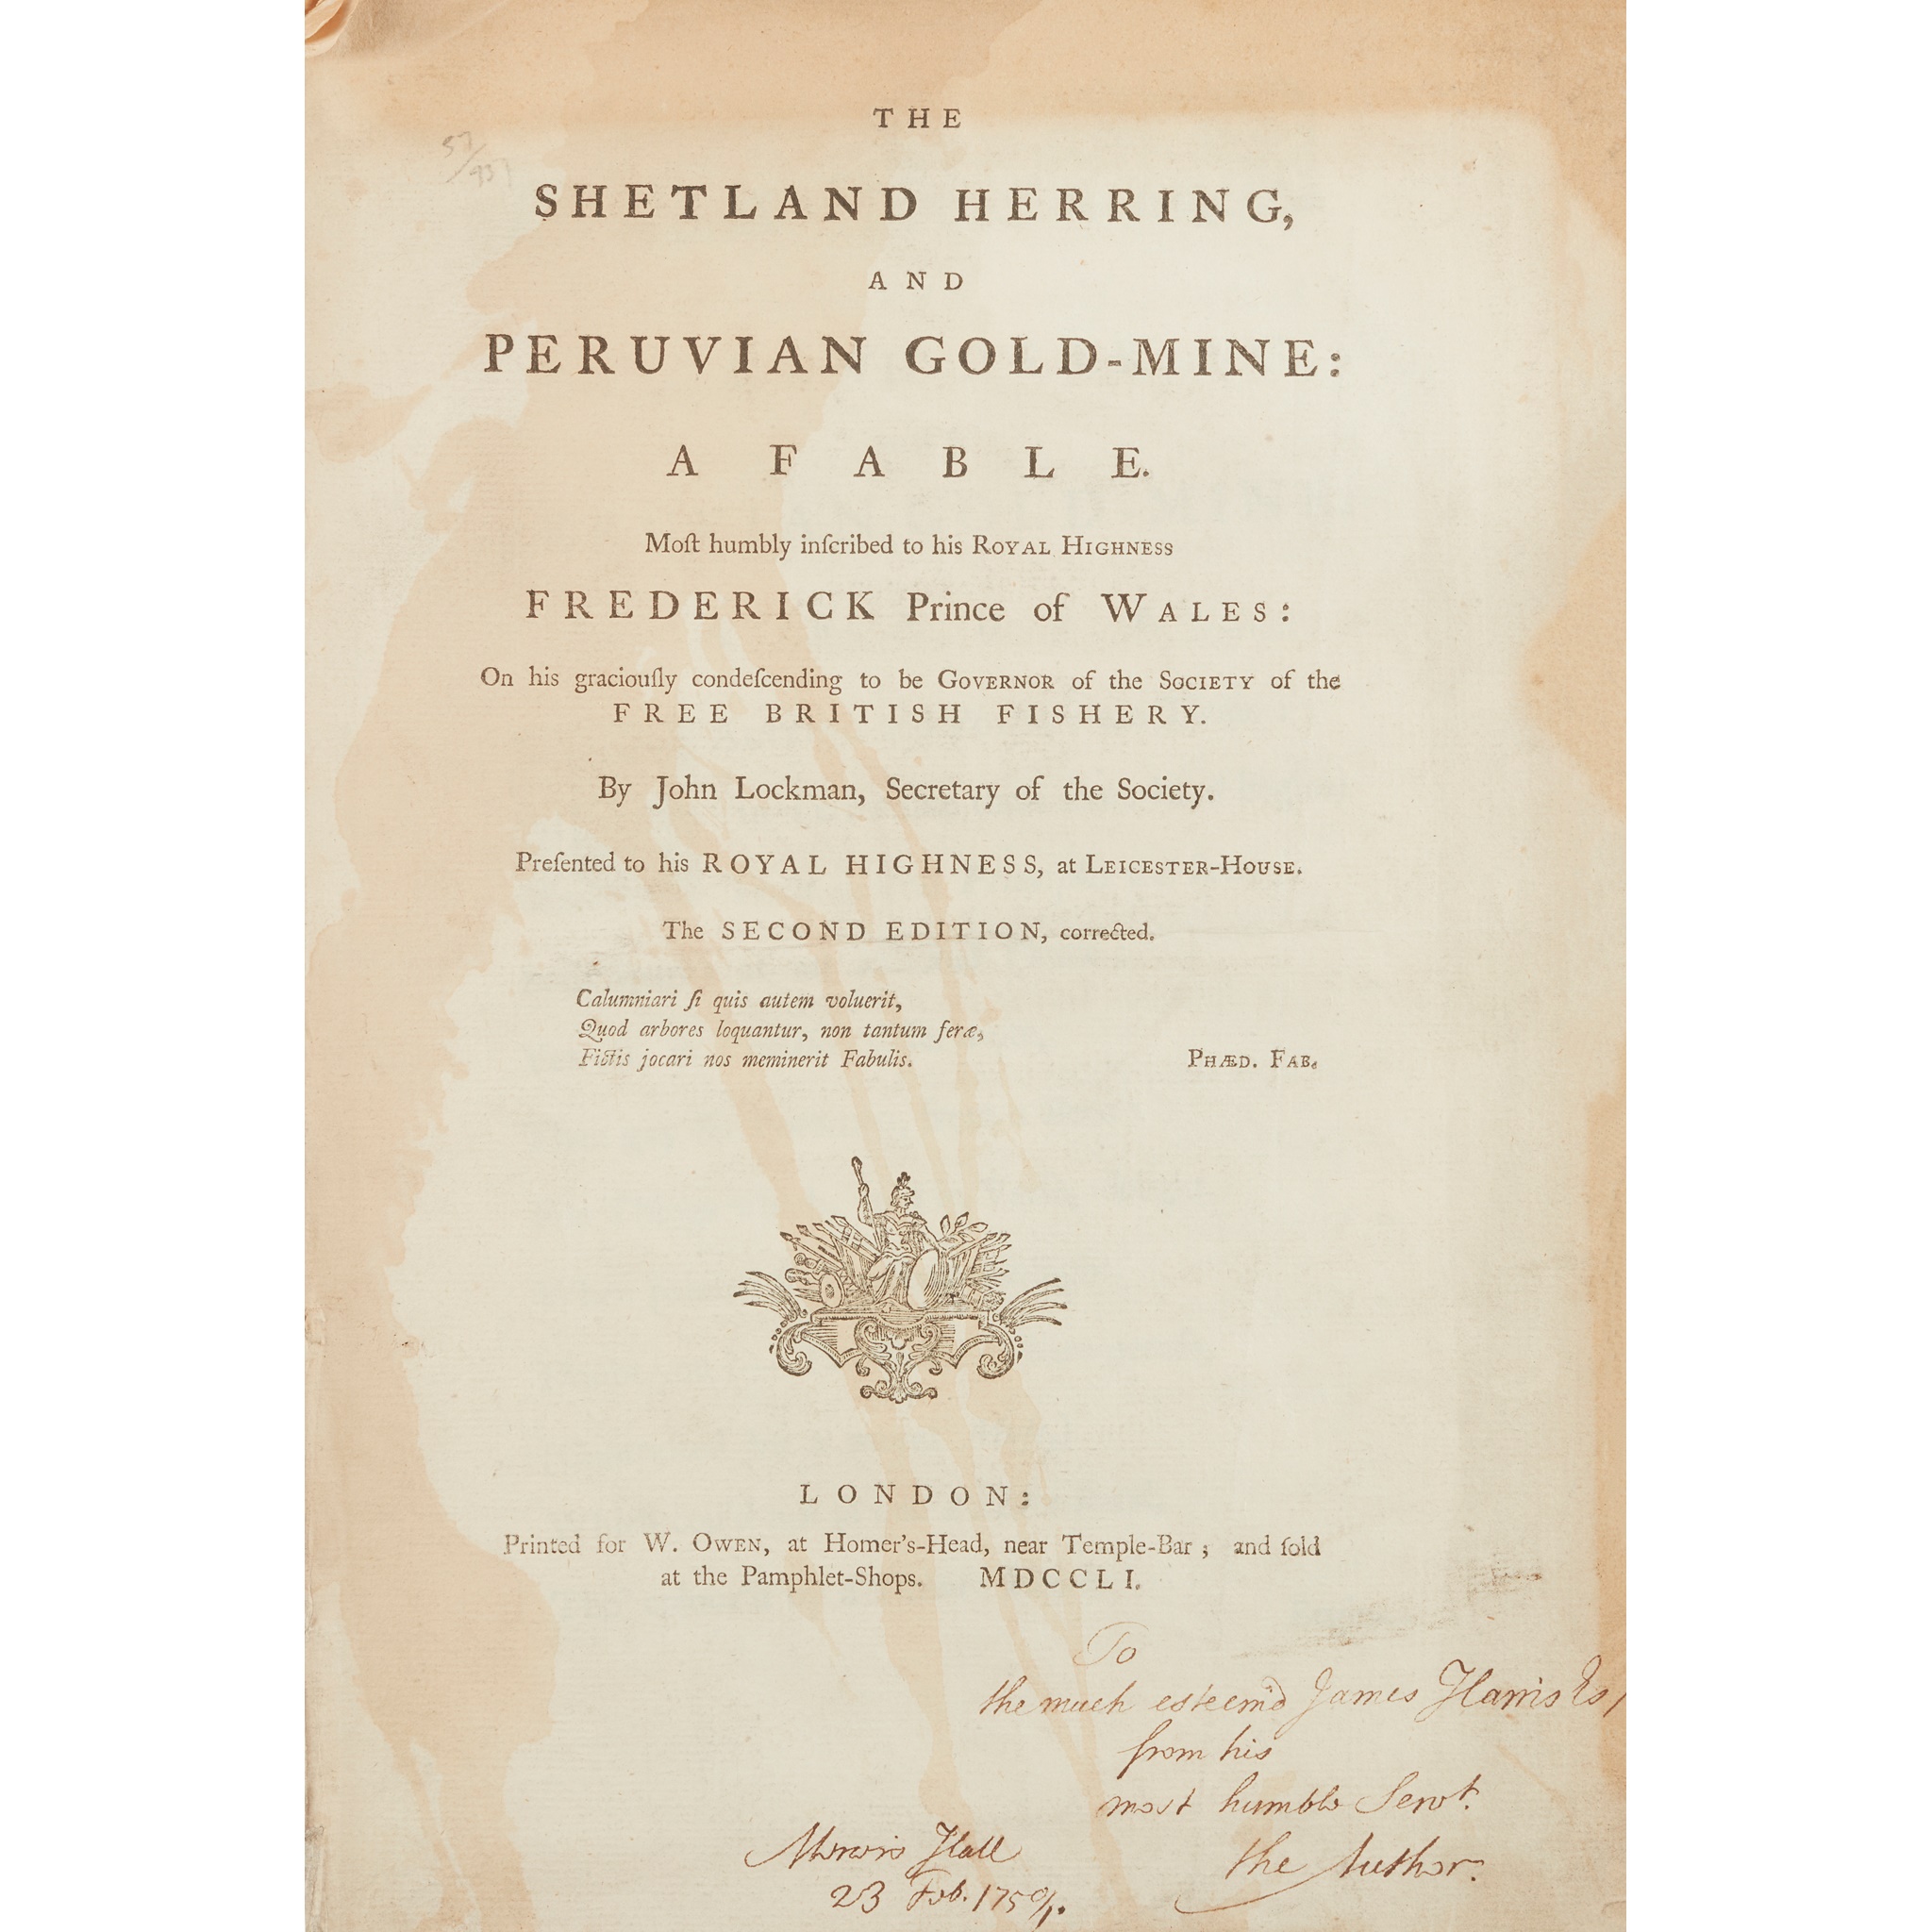 THE
57/937
SHETLAND HERRING,
AND
PERUVIAN GOLD-MINE:
A FABLE.
Moſt humbly inſcribed to his ROYAL HIGHNESS
FREDERICK Prince of WALES:
On his graciouſly condeſcending to be GOVERNOR of the SOCIETY of the
FREE BRITISH FISHERY.
By John Lockman, Secretary of the Society.
Preſented to his ROYAL HIGHNESS, at LEICESTER-HOUSE.
The SECOND EDITION, corrected.
Calumniari ſi quis autem voluerit,
Quod arbores loquantur, non tantum feræ,
Fictis jocari nos meminerit Fabulis. PHÆD. FAB.
LONDON:
Printed for W. OWEN, at Homer's-Head, near Temple-Bar; and ſold
at the Pamphlet-Shops. MDCCLI.
To
the much esteem'd James Harris Es
from his
most humble Servt.
the Author.
Hall
23 Feb. 1750/1.